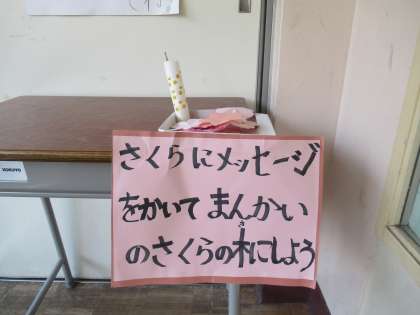 さくらにメッセージ
をかいてまんかい
のさくらの木にしよう
き
KOKUYO